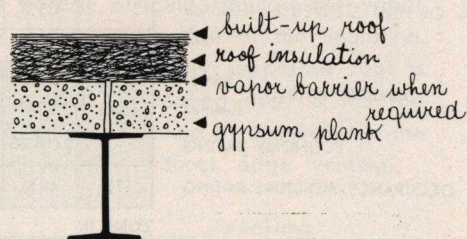 built-up roof
roof insulation
vapor barrier when
required
gypsum plank